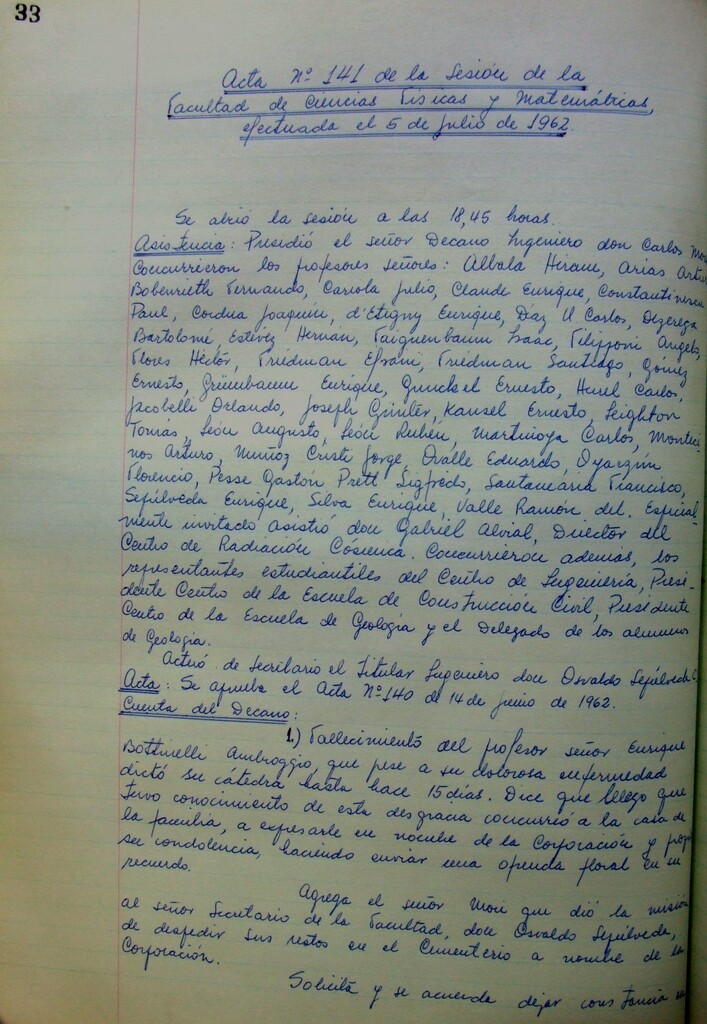 33
Acta Nº 141 de la sesión de la
Facultad de Ciencias Físicas y Matemáticas,
efectuada el 5 de julio de 1962.
Se abrió la sesión a las 18,45 horas.
Asistencia: Presidió el señor Decano Ingeniero don Carlos
Concurrieron los profesores señores: Albala Hiram, Arias
Bobenrieth Fernando, Cariola Julio, Claude Enrique,
Paul, Cordua Joaquín, d'Etigny Enrique, Díaz U Carlos, Dezerega
Bartolomé, Estévez Hernán, Faiguenbaum Isaac, Filipponi Angelo,
Flores Héctor, Friedman Efraín, Friedman Santiago, Gómez
Ernesto, Grünbaum Enrique, Gunckel Ernesto, Hurel Carlos,
Jacobelli Orlando, Joseph Günter, Kausel Ernesto, Leighton
Tomás, León Augusto, León Rubén, Martinoya Carlos, Monteci-
nos Arturo, Muñoz Cristi Jorge, Ovalle Eduardo, Oyarzún
Florencio, Pesse Gastón Prett Sigfredo, Santamaría Francisco,
Sepúlveda Enrique, Silva Enrique, Valle Ramón del. Especial-
mente invitado asistió don Gabriel Alvial, Director del
Centro de Radiación Cósmica. Concurrieron además, los
representantes estudiantiles del Centro de Ingeniería, Presi-
dente Centro de la Escuela de Construcción Civil, Presidente
Centro de la Escuela de Geología y el Delegado de los alumnos
de Geología.
Actuó de Secretario el Titular Ingeniero don Osvaldo Sepúlveda
Acta: Se aprueba el Acta Nº 140 de 14 de junio de 1962.
Cuenta del Decano:
1.) Fallecimiento del profesor señor Enrique
Bottinelli Ambroggio, que pese a su dolorosa enfermedad
dictó su cátedra hasta hace 15 días. Dice que luego que
tuvo conocimiento de esta desgracia concurrió a la casa de
la familia, a expresarle en nombre de la Corporación y
su condolencia, haciendo enviar una ofrenda floral en su
recuerdo.
Agrega el señor Mori que dió la misión
al señor Secretario de la Facultad, don Osvaldo Sepúlveda,
de despedir sus restos en el Cementerio a nombre de la
Corporación.
Solicita y se acuerda dejar constancia